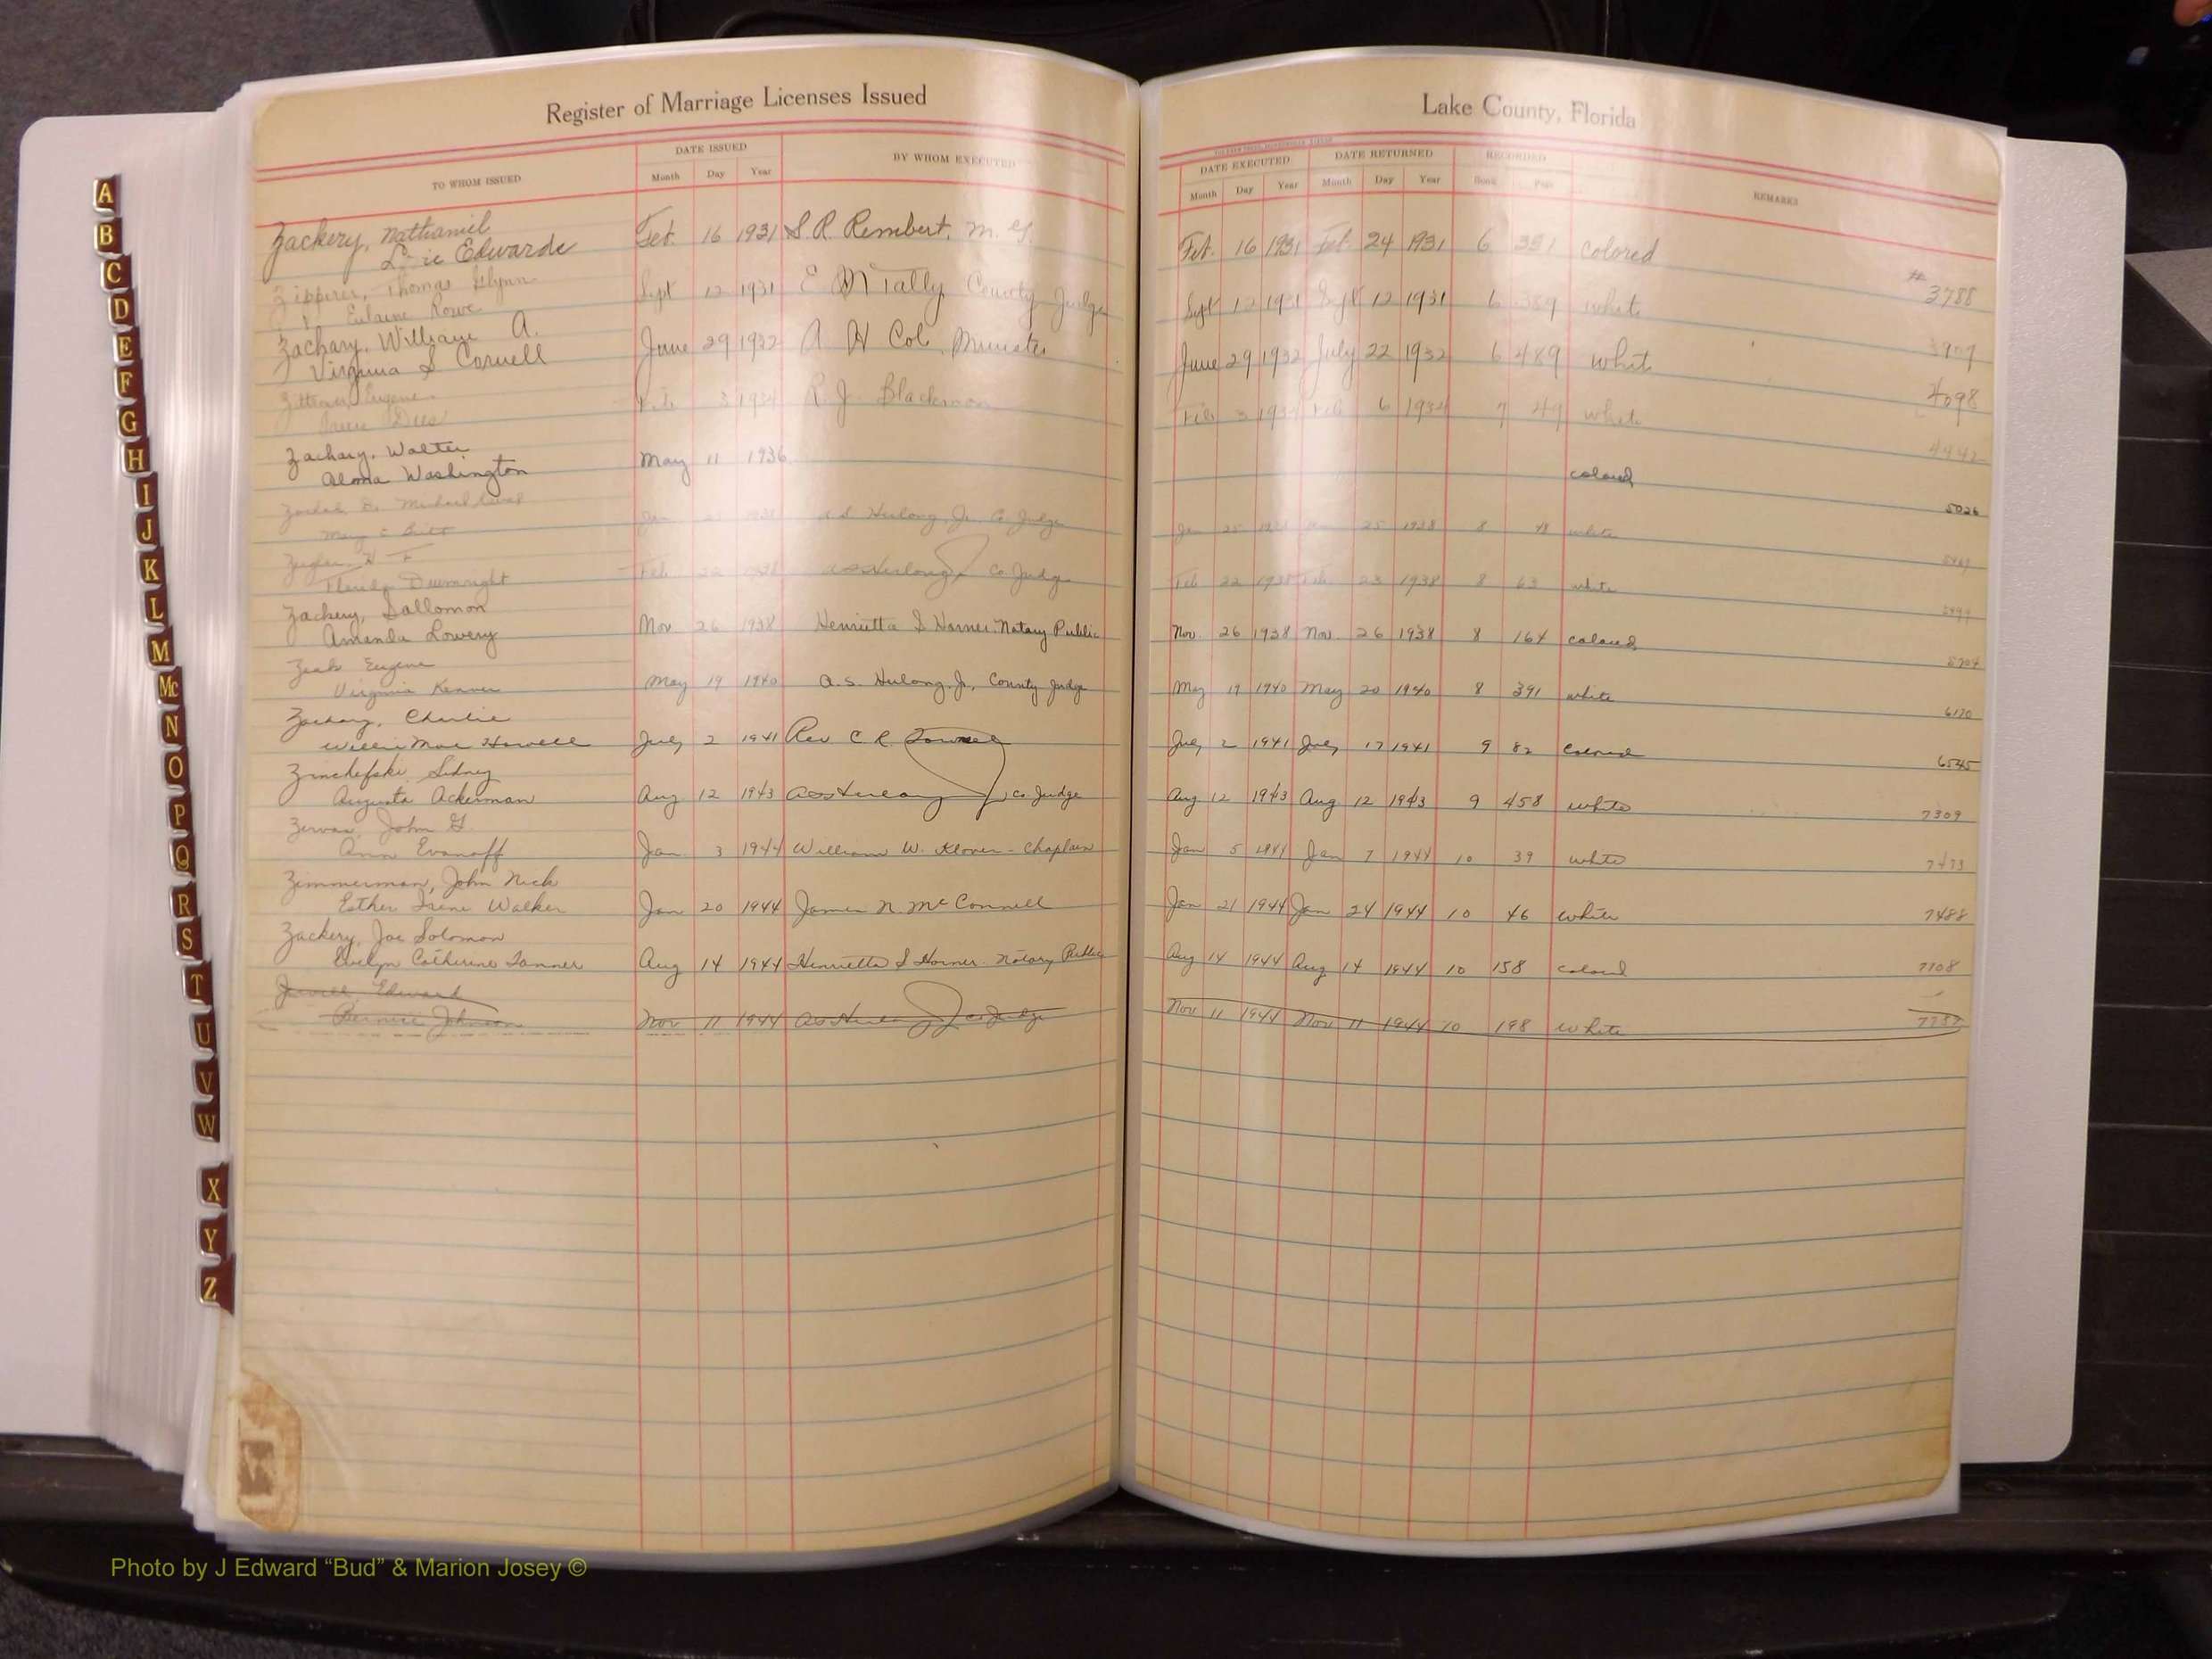 Register of Marriage Licenses Issued
Lake County, Florida
TO WHOM ISSUED
DATE ISSUED
Month Day Year
BY WHOM EXECUTED
DATE EXECUTED
Month Day Year
DATE RETURNED
Month Day Year
RECORDED
Book Page
REMARKS
Zackery, Nathaniel
Edwards Feb. 16 1931 S. R. Rembert, M. G. Feb. 16 1931 Feb. 24 1931 6 331 colored
# 3788
Zipperer, Thomas Glynn
Eulaine Rowe Sept 12 1931 E M Tally County Judge Sept 12 1931 Sept 12 1931 6 389 white
3909
Zachary, William A.
Virginia S Cornell June 29 1932 A H Col, Minister June 29 1932 July 22 1932 6 489 whit
4098
Eugene
Irene Dees Feb 3 1934 R. J. Blackmon Feb 3 1934 Feb 6 1934 7 49 white
4442
Zachary, Walter
Alma Washington May 11 1936 colored
5026
Michael
Mary E Britt Jan 25 1938 Jr. Co Judge Jan 25 1938 Jan 25 1938 8 48 white
H F
Florida Feb 22 1938 Co Judge Feb 22 1938 Feb 23 1938 8 63 white
5499
Zackery, Sallomon
Amanda Lowery Nov. 26 1938 Henrietta S Horner Notary Public Nov. 26 1938 Nov. 26 1938 8 164 colored
5704
Eugene
Virginia May 19 1940 A. S. Herlong, Jr., County Judge May 19 1940 May 20 1940 8 391 white
6170
Zachary, Charlie
Willie Mae Howell July 2 1941 Rev C. R. July 2 1941 July 17 1941 9 82 colored
6545
Zinchefski, Sidney
Augusta Ackerman Aug 12 1943 Co. Judge Aug 12 1943 Aug 12 1943 9 458 white
7309
Zervas, John G.
Ann Evanoff Jan 3 1944 William W. Klover - Chaplain Jan 5 1944 Jan 7 1944 10 39 white
7473
Zimmerman, John Nick
Esther Irene Walker Jan 20 1944 James N. McConnell Jan 21 1944 Jan 24 1944 10 46 white
7488
Zackery, Joe Solomon
Evelyn Catherine Tanner Aug 14 1944 Henrietta S Horner Notary Public Aug 14 1944 Aug 14 1944 10 158 colored
7708
Edward
Bernice Johnson Nov 11 1944 Co Judge Nov 11 1944 Nov 11 1944 10 198 white
A
B
C
D
E
F
G
H
I
J
K
L
M
Mc
N
O
P
Q
R
S
T
U
V
W
X
Y
Z
Photo by J Edward “Bud” & Marion Josey ©